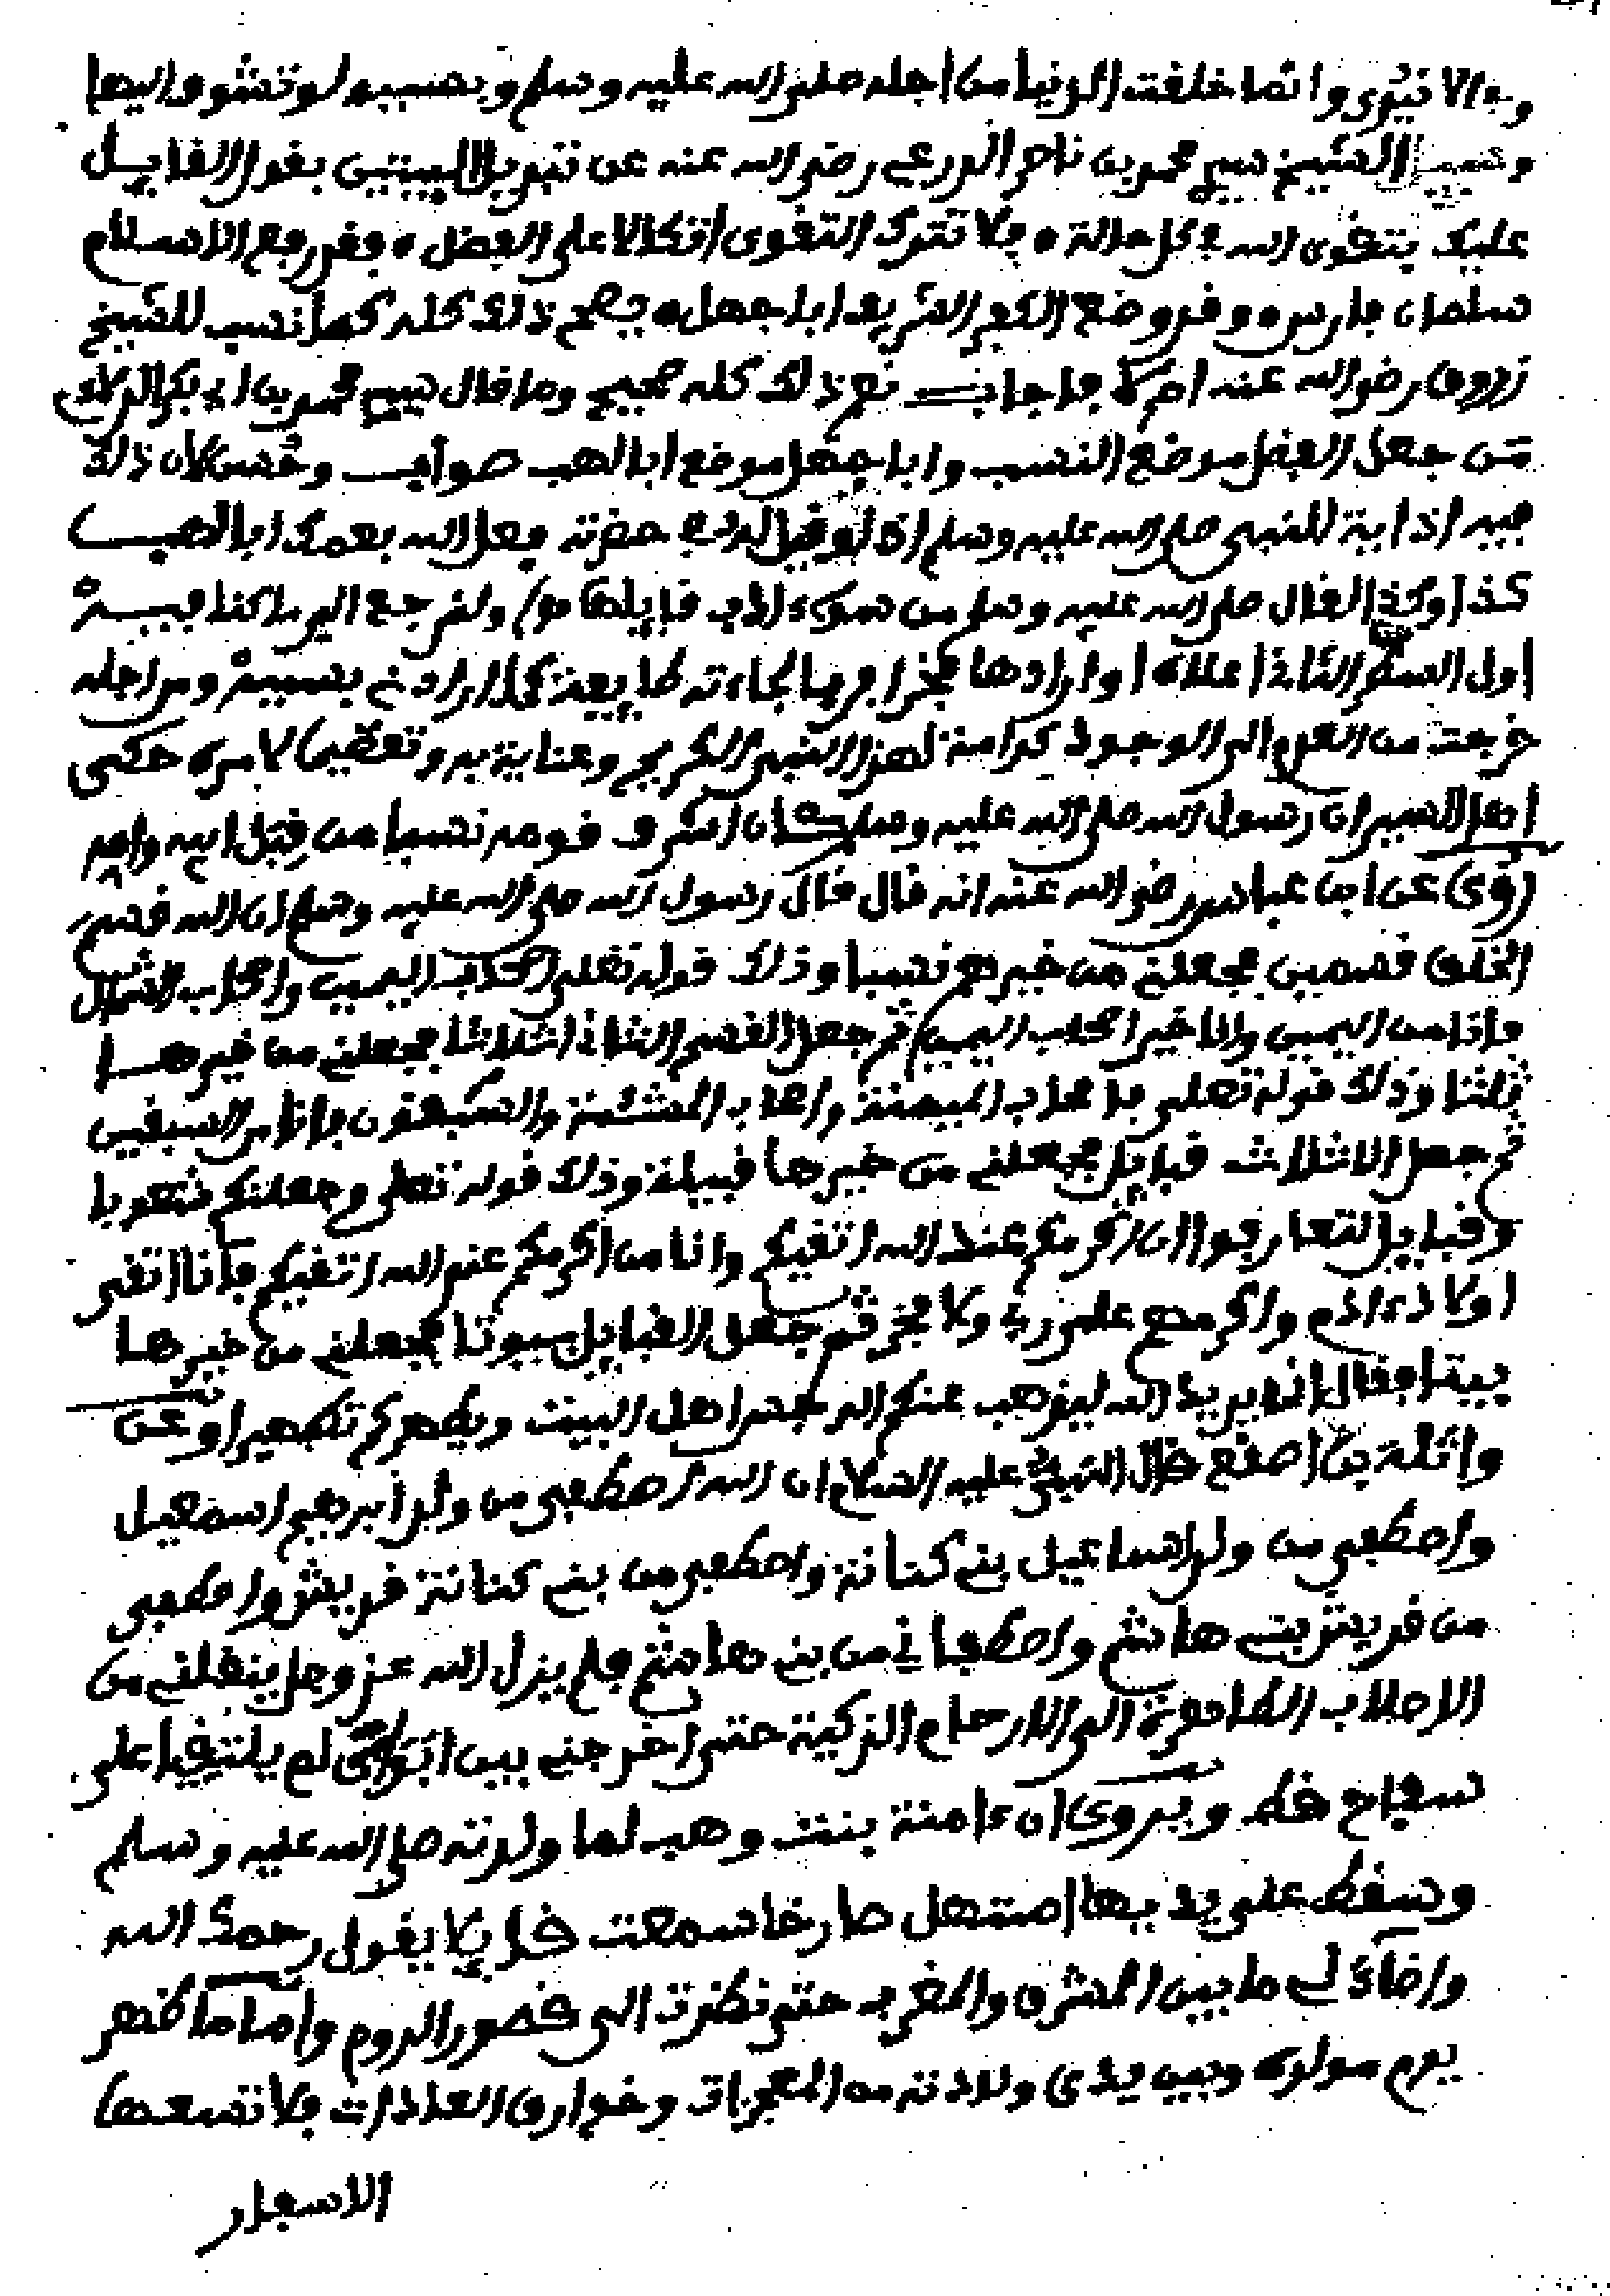 وانما خلقت الدنيا من اجله صلى الله عليه وسلم وبسببه لو تشوف اليها
وسيل الشيخ سيدي محمد بن ناصر الدرعي رضي الله عنه عن تبديل البيتين بقول القايل
عليك بتقوى الله في كل حالة ولا تترك التقوى اتكالا على الفضل فقد رفع الاسلام
سلمان فارس وقد وضع الكفر الشريف ابا جهل يصح ذلك كله كما نسب للشيخ
زروق رضي الله عنه ام لا فاجاب نعم ذلك كله صحيح وما قال سيدي محمد بن ابي بكر الدلاي
من جعل الفضل موضع النسب وابا جهل موضع ابا لهب صواب وحسن لان ذلك
فيه اذاية للنبي صلى الله عليه وسلم اذ لو قيل له في حضرته فعل الله بعمك ابا لهب
كذا وكذا لقال صلى الله عليه وسلم من سوء الادب قايلها ولنرجع الى ما كنا فيه
اول السطر الثاني اعلاه او ارادها فخرا فيها لجاءته لما يعني لما اراد بسببه ومن اجله
خرجت من العدم الى الوجود كرامة لهذا النبي الكريم وعناية به وتعظيما لامره حكى
اهل السير ان رسول الله صلى الله عليه وسلم كان اشرف قومه نسبا من قبل ابيه وامه
روي عن ابن عباس رضي الله عنه انه قال قال رسول الله صلى الله عليه وسلم ان الله قسم
الخلق قسمين فجعلني من خيرهم نسبا وذلك قوله تعلى اصحاب اليمين واصحاب الشمال
وانا من اليمين وانا خير اصحاب اليمين ثم جعل القسم الثاني اثلاثا فجعلني من خيرها
ثلثا وذلك قوله تعلى فاصحاب الميمنة واصحاب المشئمة والسبقون فانا من السبقين
ثم جعل الاثلاث قبايل فجعلني من خيرها قبيلة وذلك قوله تعلى وجعلنكم شعوبا
وقبايل لتعارفوا ان اكرمكم عند الله اتقيكم وانا من اكرمكم عند الله اتقيكم فانا اتقى
اولاد ءادم واكرمهم على ربي ولا فخر ثم جعل القبايل بيوتا فجعلني من خيرها
بيتا فقال انما يريد الله ليذهب عنكم الرجس اهل البيت ويطهركم تطهيرا وعن
واثلة بن اصقع قال النبي عليه السلام ان الله اصطفى من ولد ابرهيم اسمعيل
واصطفى من ولد اسماعيل بني كنانة واصطفى من بني كنانة قريش واصطفى
من قريش بني هاشم واصطفاني من بني هاشم فلم يزل الله عز وجل ينقلني من
الاصلاب الطاهرة الى الارحام الزكية حتى اخرجني بين ابوي لم يلتقيا على
سفاح قط ويروى ان ءامنة بنت وهب لما ولدته صلى الله عليه وسلم
وسقط على يديها استهل صارخا سمعت قايلا يقول رحمك الله
واضاء لي ما بين المشرق والمغرب حتى نظرت الى قصور الروم واما ما ظهر
يوم مولده وبين يدي ولادته من المعجزات وخوارق العادات فلا تسعها
الاسفار